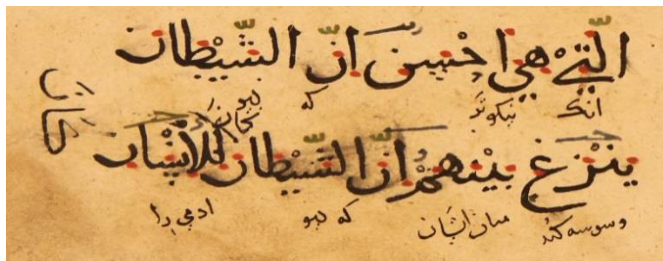 الَّتِيْ هِيَ اَحْسَنُ اِنَّ الشَّيْطَانَ
انک نیکوتر که دیو
كَانَ
يَنْزَغُ بَيْنَهُمْ اِنَّ الشَّيْطَانَ لِلْاِنْسَانِ
وسوسه کند میان ایشان که دیو ادمی را